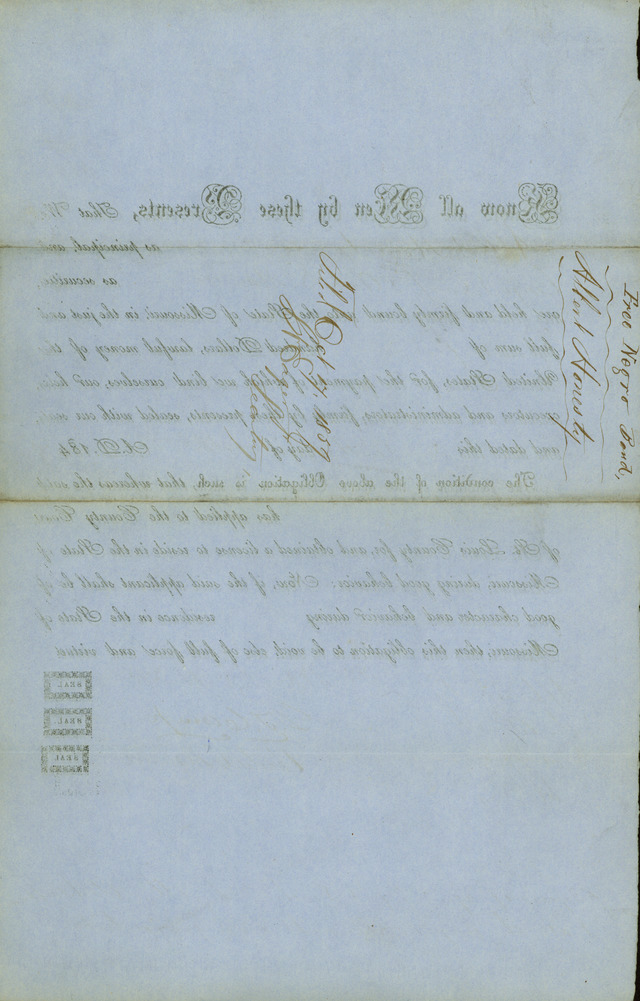 Free Negro Bond,
Albert Honesty
Oct 7. 1859
Know all Men by these Presents, That We
as principal, and
as securities,
are held and firmly bound the State of Missouri in the just and
full sum of Hundred Dollars, lawful money of the
United States, for the payment of which we bind ourselves, our heirs,
executors and administrators, firmly by these presents, sealed with our seals
and dated this day of A. D. 184
The condition of the above Obligation is such, that whereas the said
has applied to the County Court
of St. Louis County for, and obtained a license to reside in the State of
Missouri, during good behavior: Now, if the said applicant shall be of
good character and behavior during residence in the State of
Missouri, then this obligation to be void, else of full force and virtue.
SEAL
SEAL
SEAL